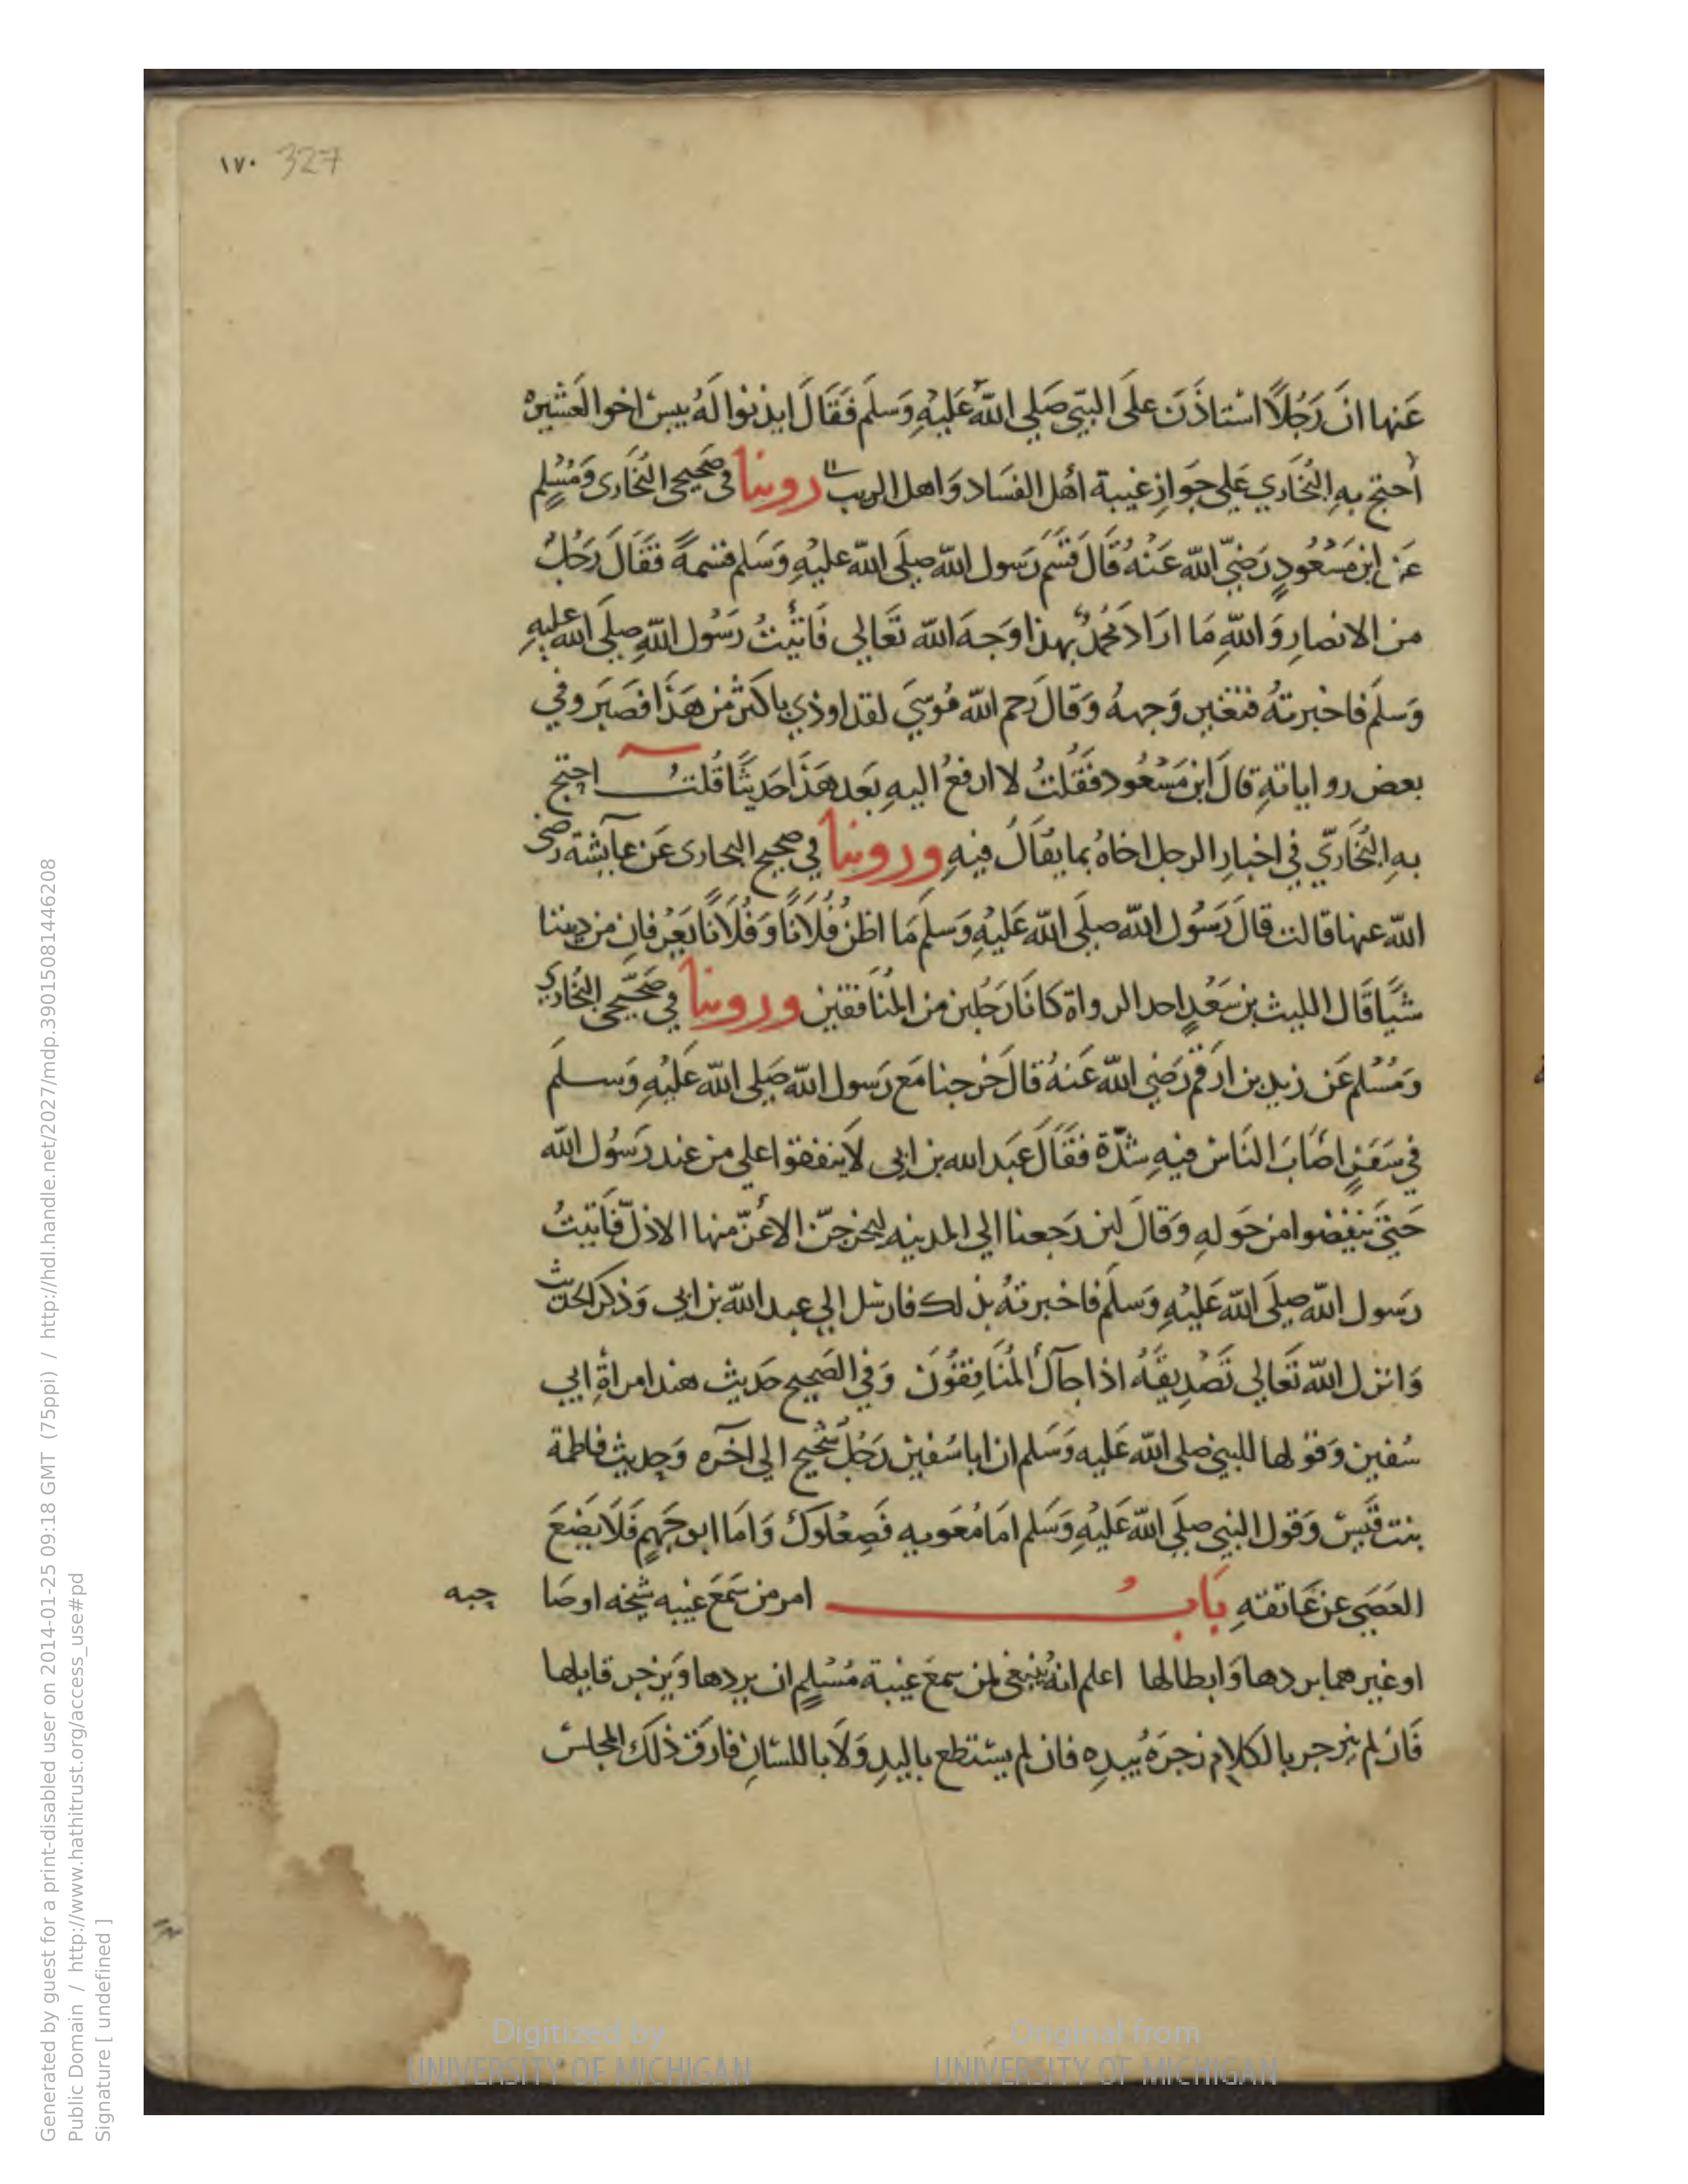 ١٧٠ 327
عَنها انَ رَجُلاً اسْتاذَنَ علَى النبّي صَلي اللهُ عَليْهِ وَسلمَ فَقَالَ ايذنوا لَهُ بيسَ اخوا العَشيرة
أحتج بهِ البُخَاري عَلي جَوازِ غيبة اهْل الفسَاد وَاهل الريب روينا في صَحيحي البُخَاري وَمُسْلِم
عَن ابن مَسْعُودٍ رَضيَ الله عَنْهُ قَالَ قسَم رَسول الله صلَى الله عليْهِ وَسَلم قسْمةً فقَالَ رَجُلٌ
من الانصارِ وَاللهِ مَا ارَادَ مُحمدٌ بهذا وَجهَ الله تَعَالي فَاتَيْتُ رَسُول اللهِ صلَى الله عليهِ
وَسلَم فاخبرتهُ فتغير وَجههُ وَقالَ رَحم الله مُوسَي لقد اوذي باكثر من هَذَا فصَبَر وفي
بعض رواياتهِ قالَ ابن مَسْعُود فقَلتُ لا ارفعُ اليهِ بَعد هَذَا حَديثًا قُلتُ احتج
بهِ البُخَاريّ في اخبارِ الرجل اخاهُ بما يقَالُ فيهِ وروينا في صحيح البخاري عَن عآيشة رضى
الله عنها قالت قالَ رَسُول الله صلَى الله عَليْهِ وَسلمَ مَا اظن فُلَانًا وَفُلَانًا يَعْرفانِ من ديننا
شيًا قَال الليث بن سَعْدٍ احد الرواة كانَا رَجُلين من المنَافقين وروينا في صَحيحى البُخَاري
وَمُسْلم عَن زيد بن ارَقم رَضي الله عَنهُ قالَ خَرجنا مَع رَسول الله صَلي الله عَليْهِ وَسلمَ
في سَفَرٍ اصَابَ النَاسَ فيهِ شدَّة فقَالَ عَبد الله بن ابى لاَ ينفقوا علي من عند رَسُول الله
حَتيَّ ينفَضوا من حَولهِ وَقالَ لين رَجعنا الي المدينه ليخرجنّ الاعَزّ منها الاذلّ فَاتيتُ
رَسول الله صلَى الله عَليْهِ وَسلَم فاخبرتهُ بذلك فارسَل الي عبد الله بن ابى وَذكر الحديث
وَانزل الله تَعَالي تَصْدِيقَهُ اذا جآكَ المُنَافِقُونَ وَفي الصَحيح حَديث هند امراةِ ابي
سُفين وَقولها للنبي صلى الله عَليه وَسَلم ان ابا سُفين رَجُلٌ شحيح الي آخره وَحديث فاطمة
بنت قَيس وَقول النبي صلَي الله عَليْهِ وَسَلم امَا مُعَويه فَصعْلوك وَامَا ابو جَهمٍ فَلاَ يضَعَ
العَصَي عَن عَاتقهِ بَابُ امر من سَمَعَ غيبه شيخه اوصَا
حبه
او غيرهما بردها وَابطالها اعلم انهُ ينبغى لمن سمعَ غيبة مُسْلِمٍ ان يردها وَيَزجر قايلها
فَان لم ينزجر بالكلامِ زجرَهُ بيدِه فان لم يستطع باليدِ وَلاَ باللسَانِ فارَق ذلكَ المجلس
Generated by guest for a print-disabled user on 2014-01-25 09:18 GMT (75ppi) / http://hdl.handle.net/2027/mdp.39015081446208
Public Domain / http://www.hathitrust.org/access_use#pd
Signature [ undefined ]
Digitized by
UNIVERSITY OF MICHIGAN
Original from
UNIVERSITY OF MICHIGAN